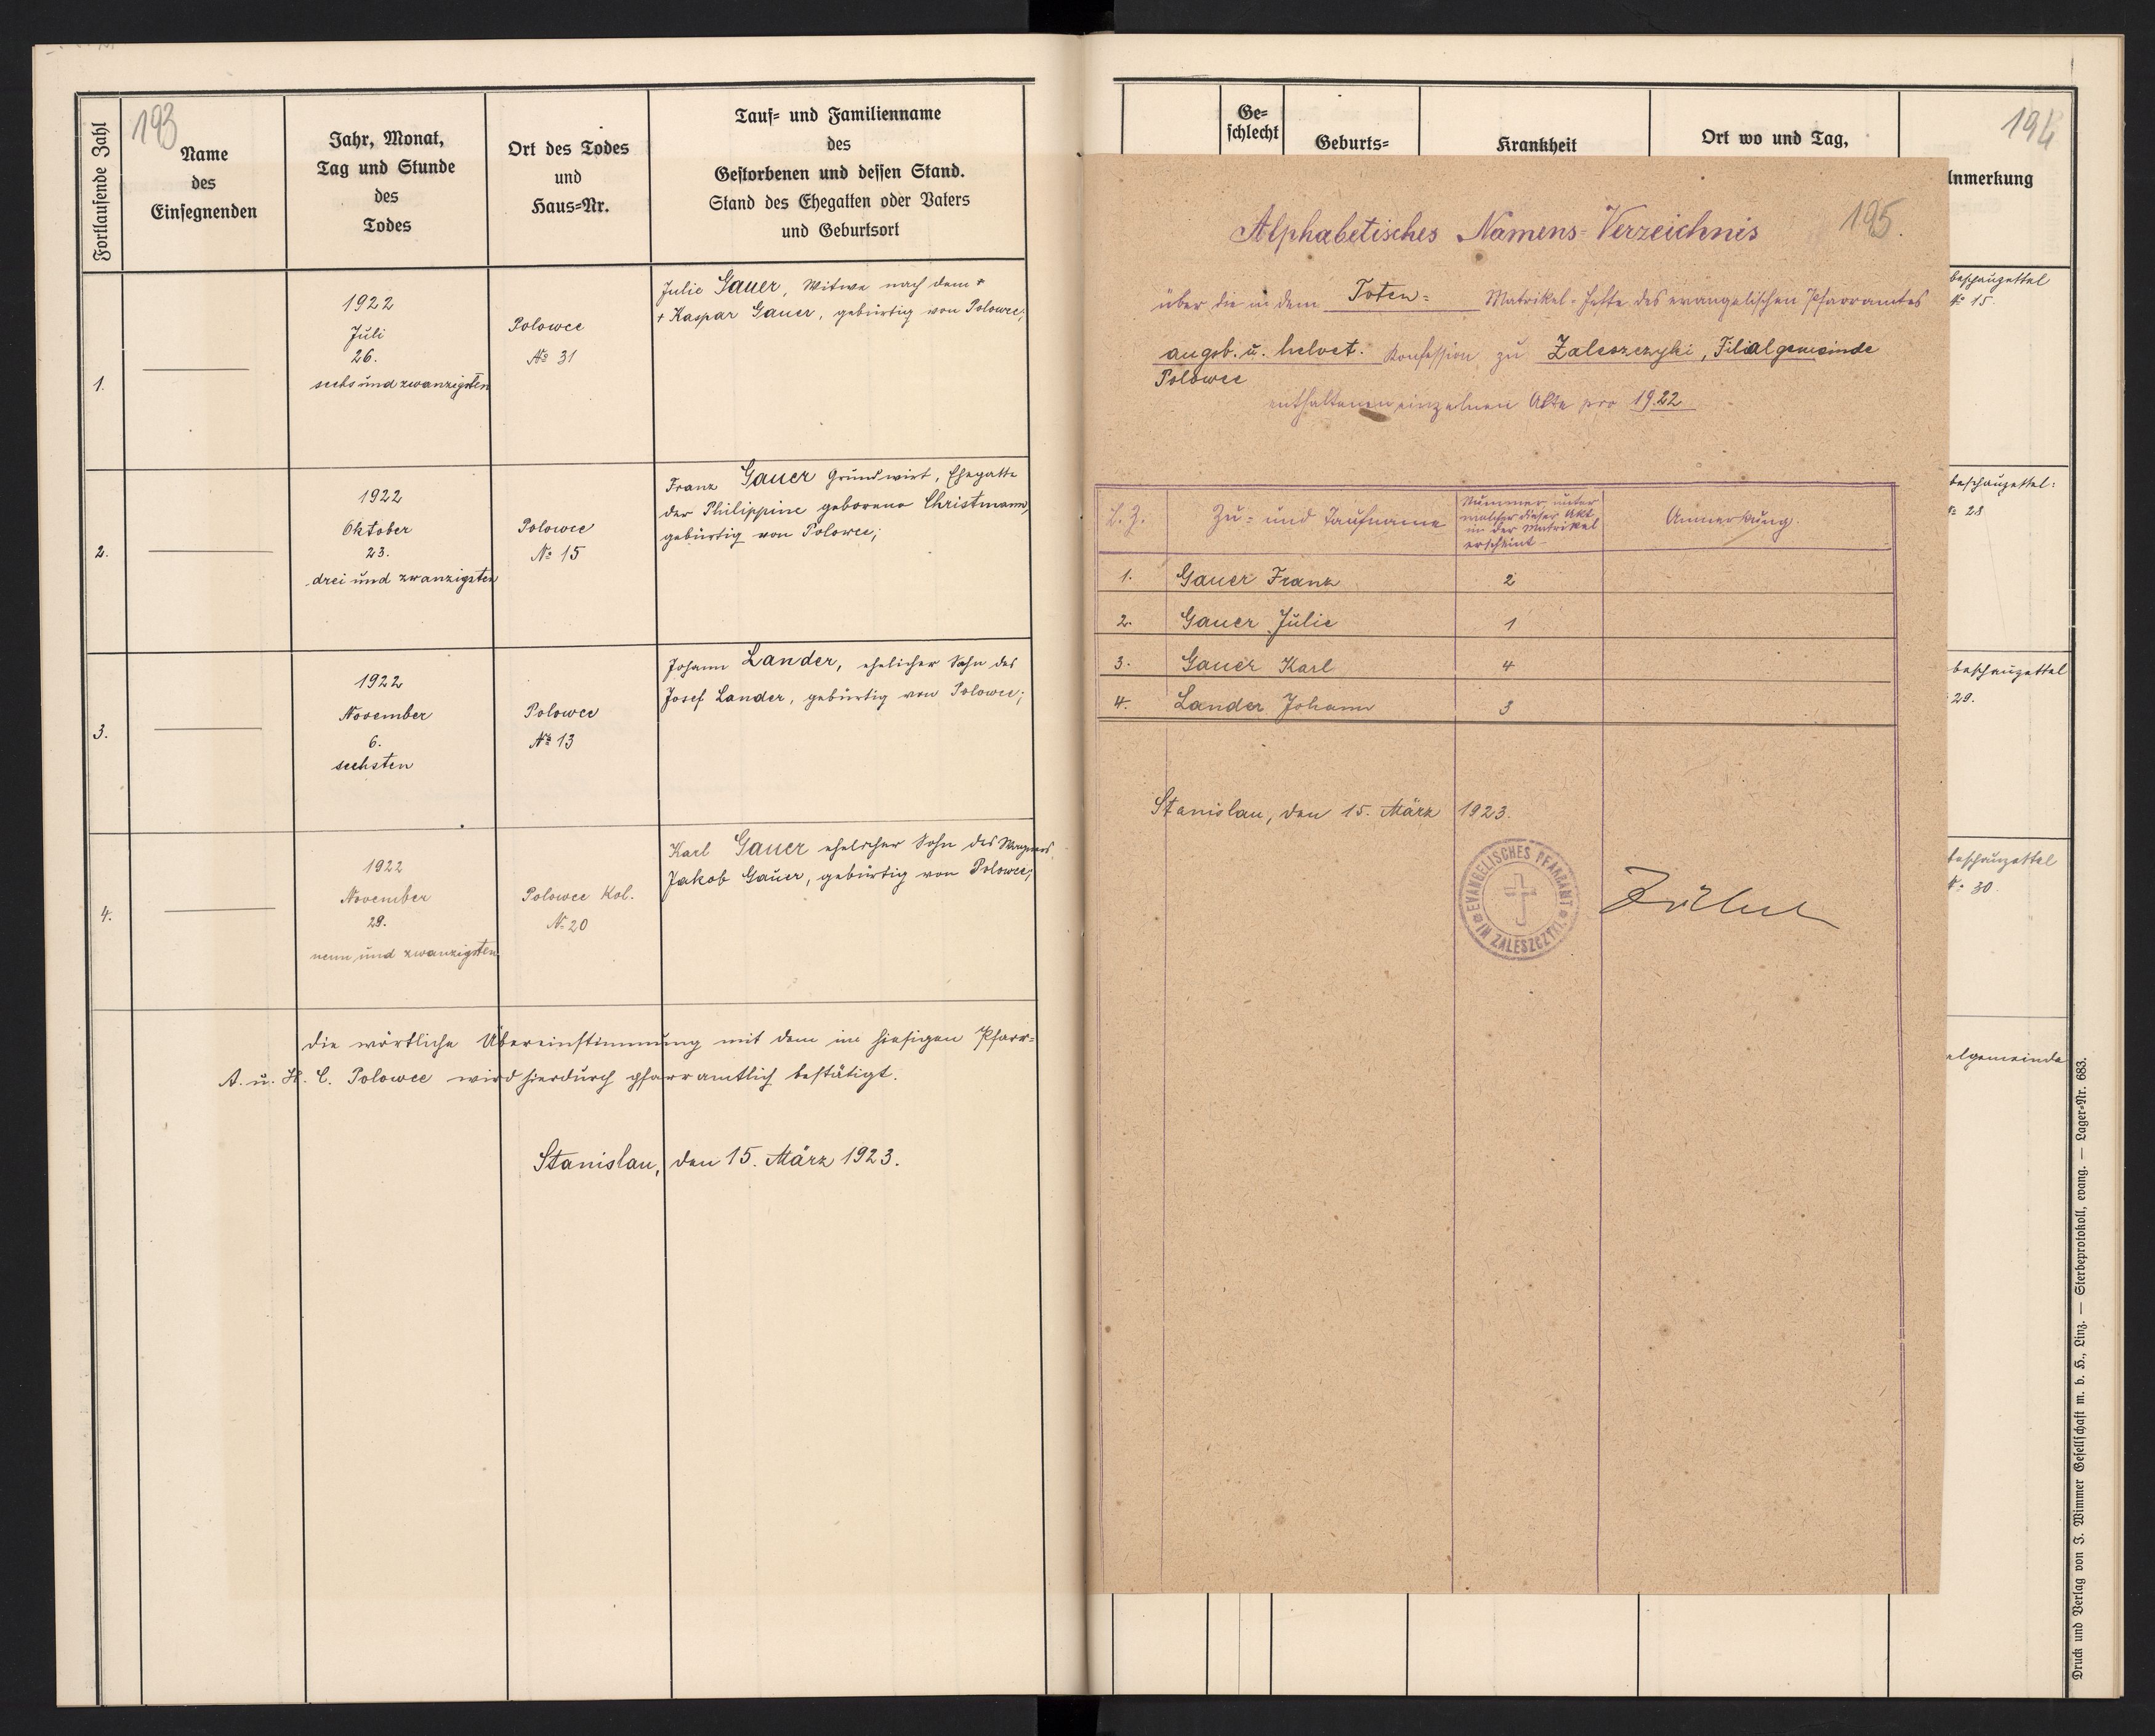 193
Fortlaufende Zahl
Name
des
Einsegnenden
Jahr, Monat,
Tag und Stunde
des
Todes
Ort des Todes
und
Haus=Nr.
Tauf= und Familienname
des
Gestorbenen und dessen Stand.
Stand des Ehegatten oder Vaters
und Geburtsort
1.
1922
Juli
26.
sechs und zwanzigsten
Polowce
№ 31
Julie Gauer, Witwe nach dem +
+ Kaspar Gauer, gebürtig von Polowce;
2.
1922
Oktober
23.
drei und zwanzigsten
Polowce
№ 15
Franz Gauer Grundwirt, Ehegatte
der Philippine geborene Christmann,
gebürtig von Polowce;
3.
1922
November
6.
sechsten
Polowce
№ 13
Johann Lander, ehelicher Sohn des
Josef Lander, gebürtig von Polowce;
4.
1922
November
29.
neun und zwanzigsten
Polowce Kol.
№ 20
Karl Gauer ehelicher Sohn des Wagners
Jakob Gauer, gebürtig von Polowce;
die wörtliche Übereinstimmung mit dem im hiesigen Pfarr=
A. u. H. C. Polowce wird hierdurch pfarramtlich bestätigt.
Stanislau, den 15. März 1923.
Ge=
schlecht
Geburts=
Krankheit
Ort wo und Tag,
194
Anmerkung
beschauzettel
№ 15.
beschauzettel:
№ 28
beschauzettel
29.
beschauzettel
№ 30.
algemeinde
195.
Alphabetisches Namens=Verzeichnis
über die in dem Toten= Matrikel=Hefte des evangelischen Pfarramtes
augsb. u. helvet. Konfession zu Zaleszczyki, Filialgemeinde
Polowce
enthaltenen einzelnen Akte pro 1922
L. Z.
Zu= und Taufname
Nummer unter
welcher dieser Akt
in der Matrikel
erscheint
Anmerkung.
1. Gauer Franz 2
2. Gauer Julie 1
3. Gauer Karl 4
4. Lander Johann 3
Stanislau, den 15. März 1923.
EVANGELISCHES PFARRAMT
IN ZALESZCZYKI
Druck und Verlag von J. Wimmer Gesellschaft m. b. H., Linz. — Sterbeprotokoll, evang. — Lager=Nr. 683.